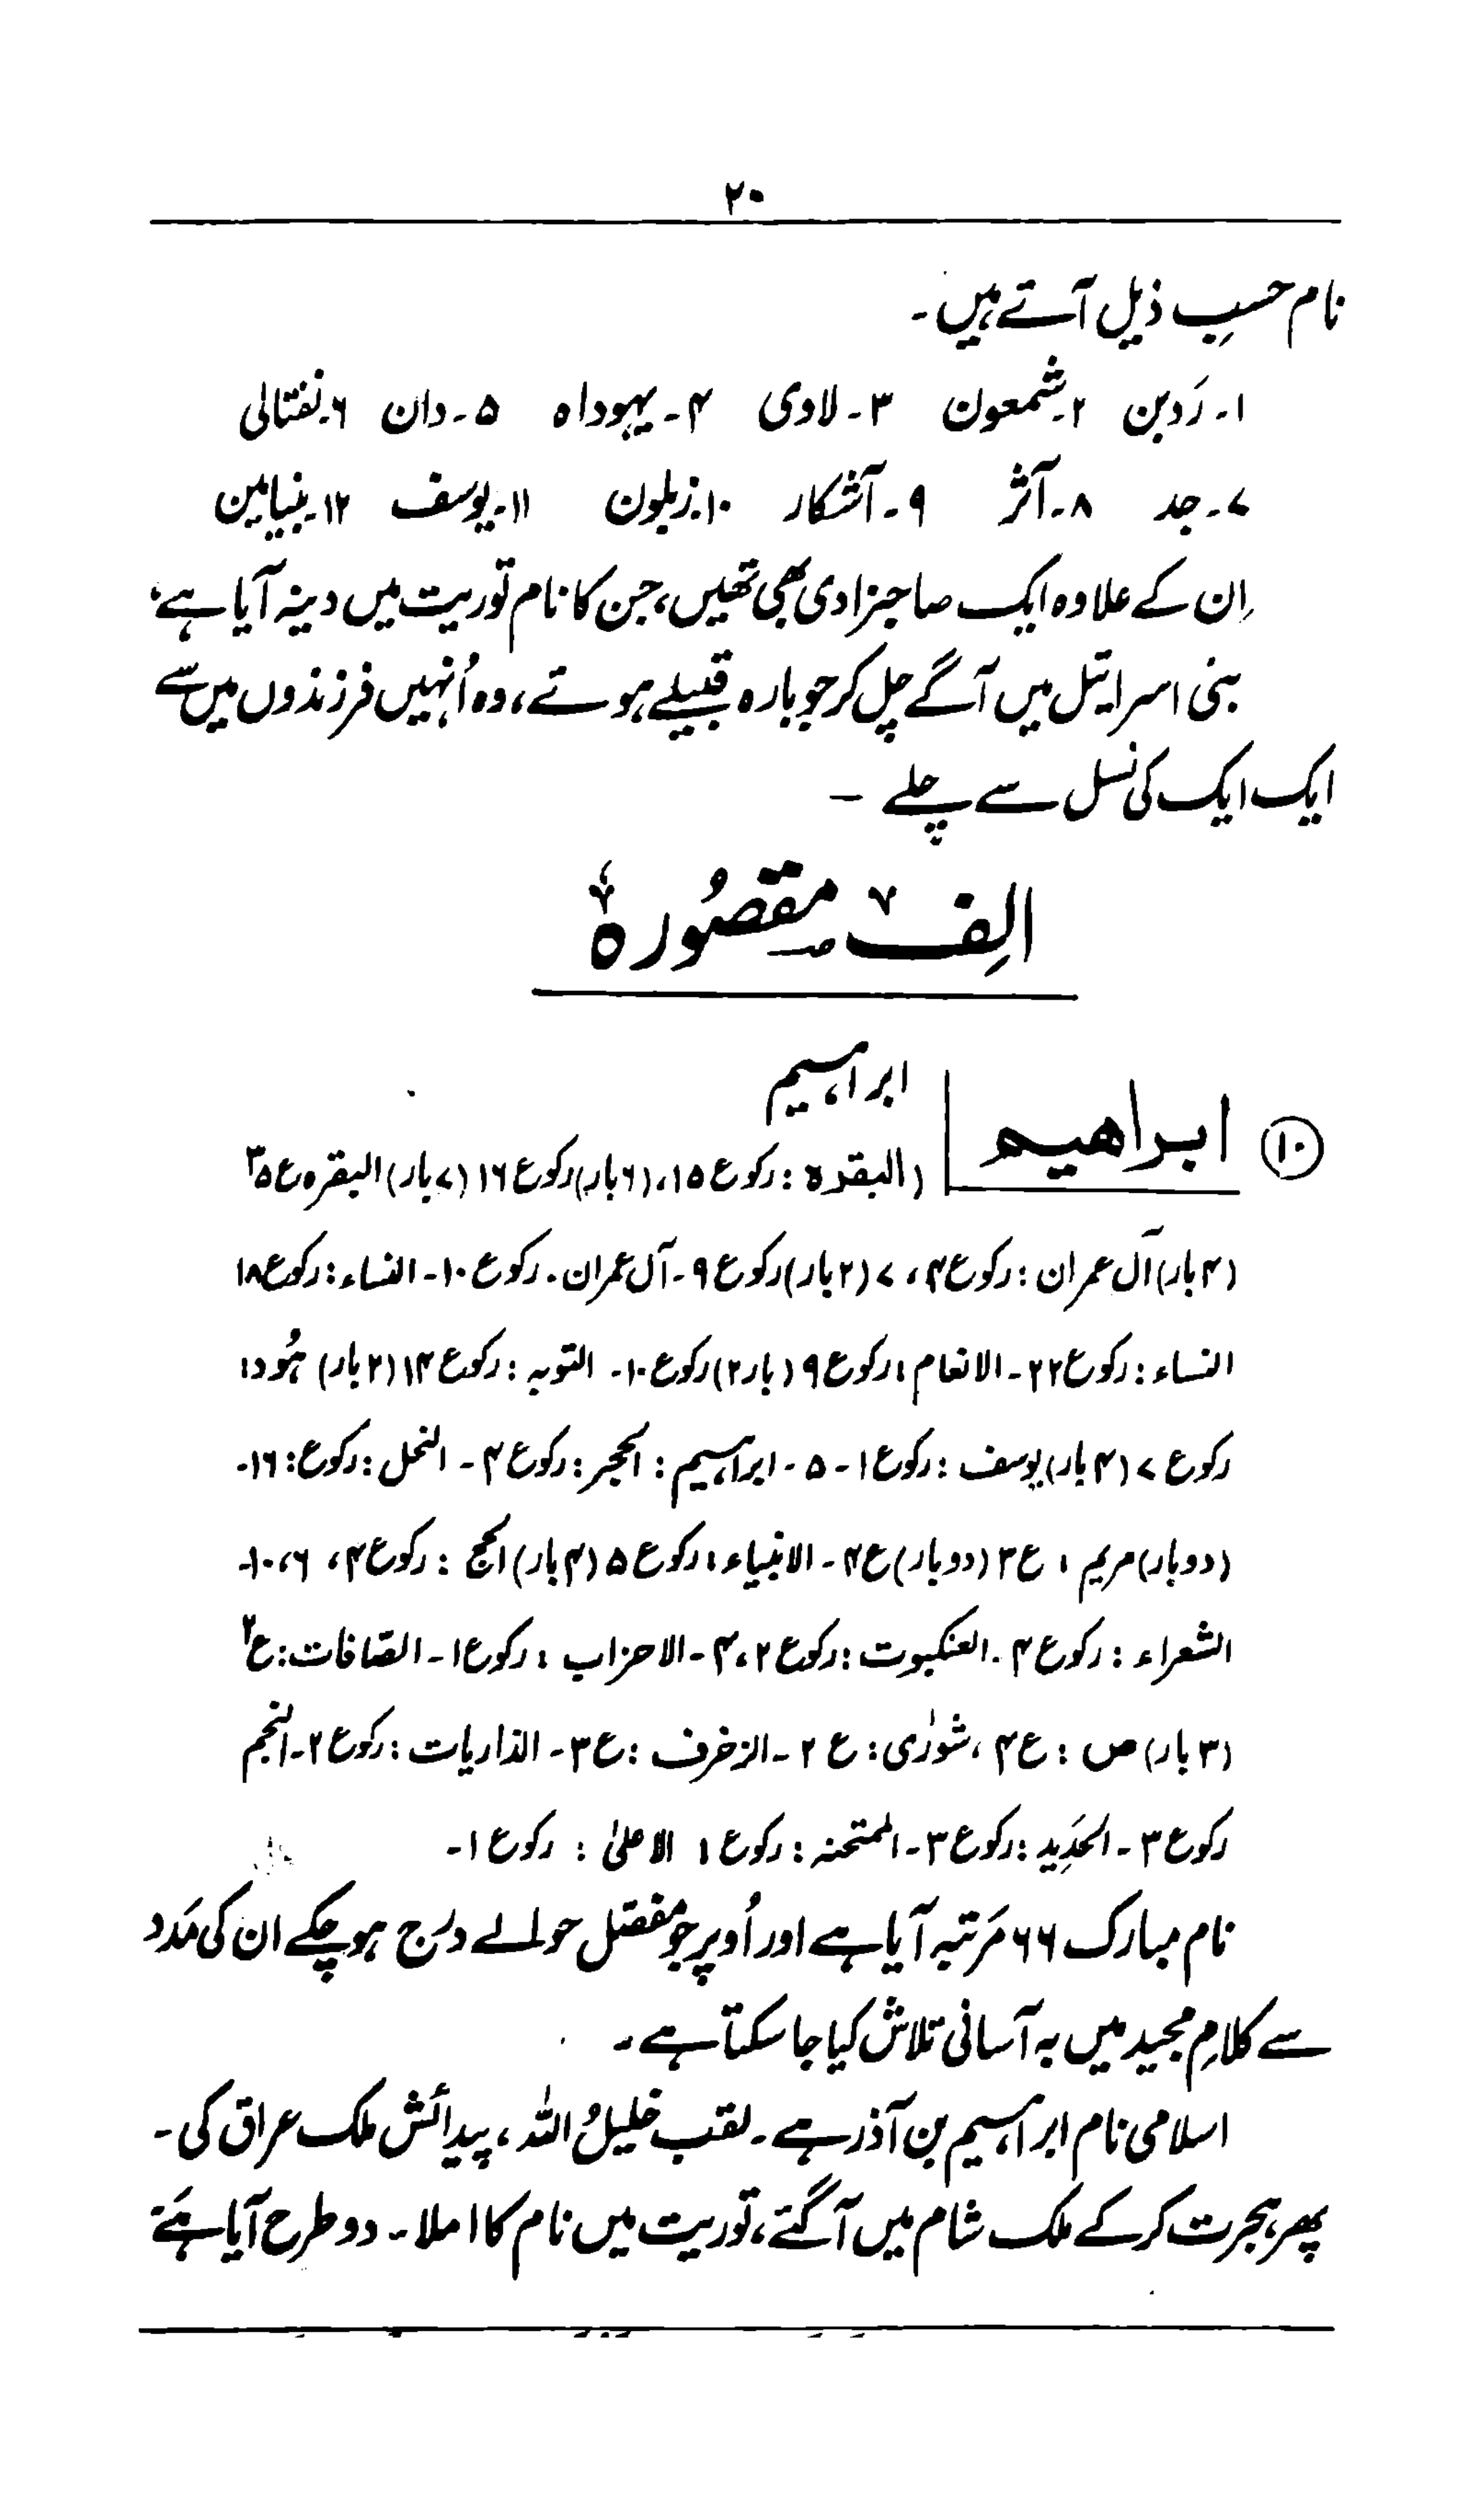 ۲۰
نام حسبِ ذیل آتے ہیں۔
۱۔ رَوبن ۲۔ شمعون ۳۔ لاوی ۴۔ یہوداہ ۵۔ دان ۶۔ نفتالی
۷۔ جد ۸۔ آشر ۹۔ آشکار ۱۰۔ زبلون ۱۱۔ یوسف ۱۲۔ بنیامین
اِن کے علاوہ ایک صاحبزادی بھی تھیں، جن کا نام توریت میں دینہ آیا ہے،
بنی اسرائیل میں آگے چل کر جو بارہ قبیلے ہوئے، وہ اُنہیں فرزندوں میں سے
ایک ایک کی نسل سے چلے ۔
الِف مقصُورہ
۱۰ ابراھیم ابراہیم
(البقرہ : رکوع ۱۵، (۶ بار) رکوع ۱۶ (۷ بار) البقرہ ع ۳۵
(۴ بار) آل عمران : رکوع ۴، ۷ (۲ بار) رکوع ۹۔ آل عمران۔ رکوع ۱۰۔ النساء : رکوع ۱۸
النساء : رکوع ۲۲۔ الانعام : رکوع ۹ (بار ۲) رکوع ۱۰۔ التوبہ : رکوع ۱۴ (۲ بار) ہُود :
رکوع ۷ (۴ بار) یوسف : رکوع ۱۔ ۵۔ ابراہیم : الحجر : رکوع ۴۔ النحل : رکوع : ۱۶۔
(دو بار) مریم : ع ۳ (دو بار) ع ۴۔ الانبیاء : رکوع ۵ (۴ بار) الحج : رکوع ۴، ۶، ۱۰۔
الشعراء : رکوع ۴۔ العنکبوت : رکوع ۲، ۴۔ الاحزاب : رکوع ۱۔ الصّافات : ع ۳
(۳ بار) ص : ع ۴، شورٰی : ع ۲۔ الزخرف : ع ۳۔ الذاریات : رکوع ۲۔ النجم
رکوع ۳۔ الحدِید : رکوع ۳۔ الممتحنہ : رکوع ۱ الاعلیٰ : رکوع ۱۔
نام مبارک ۶۶ مَرتبہ آیا ہے اور اُوپر جو مفصّل حوالے درَج ہو چکے ان کی مَدَد
سے کلامِ مجید میں بہ آسانی تلاش کیا جا سکتا ہے۔
اسلامی نام ابراہیم بن آذر ہے۔ لقب خلیلُ اللہ، پیدائش ملک عراق کی۔
پھر ہجرت کر کے ملک شام میں آ گئے، توریت میں نام کا املا۔ دو طرح آیا ہَے